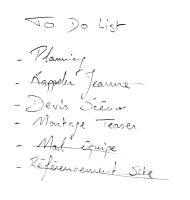 To Do List
- Planning
- Rappeler Jeanne
- Devis Scéno
- Montage Teaser
- Mail équipe
- Référencement Site